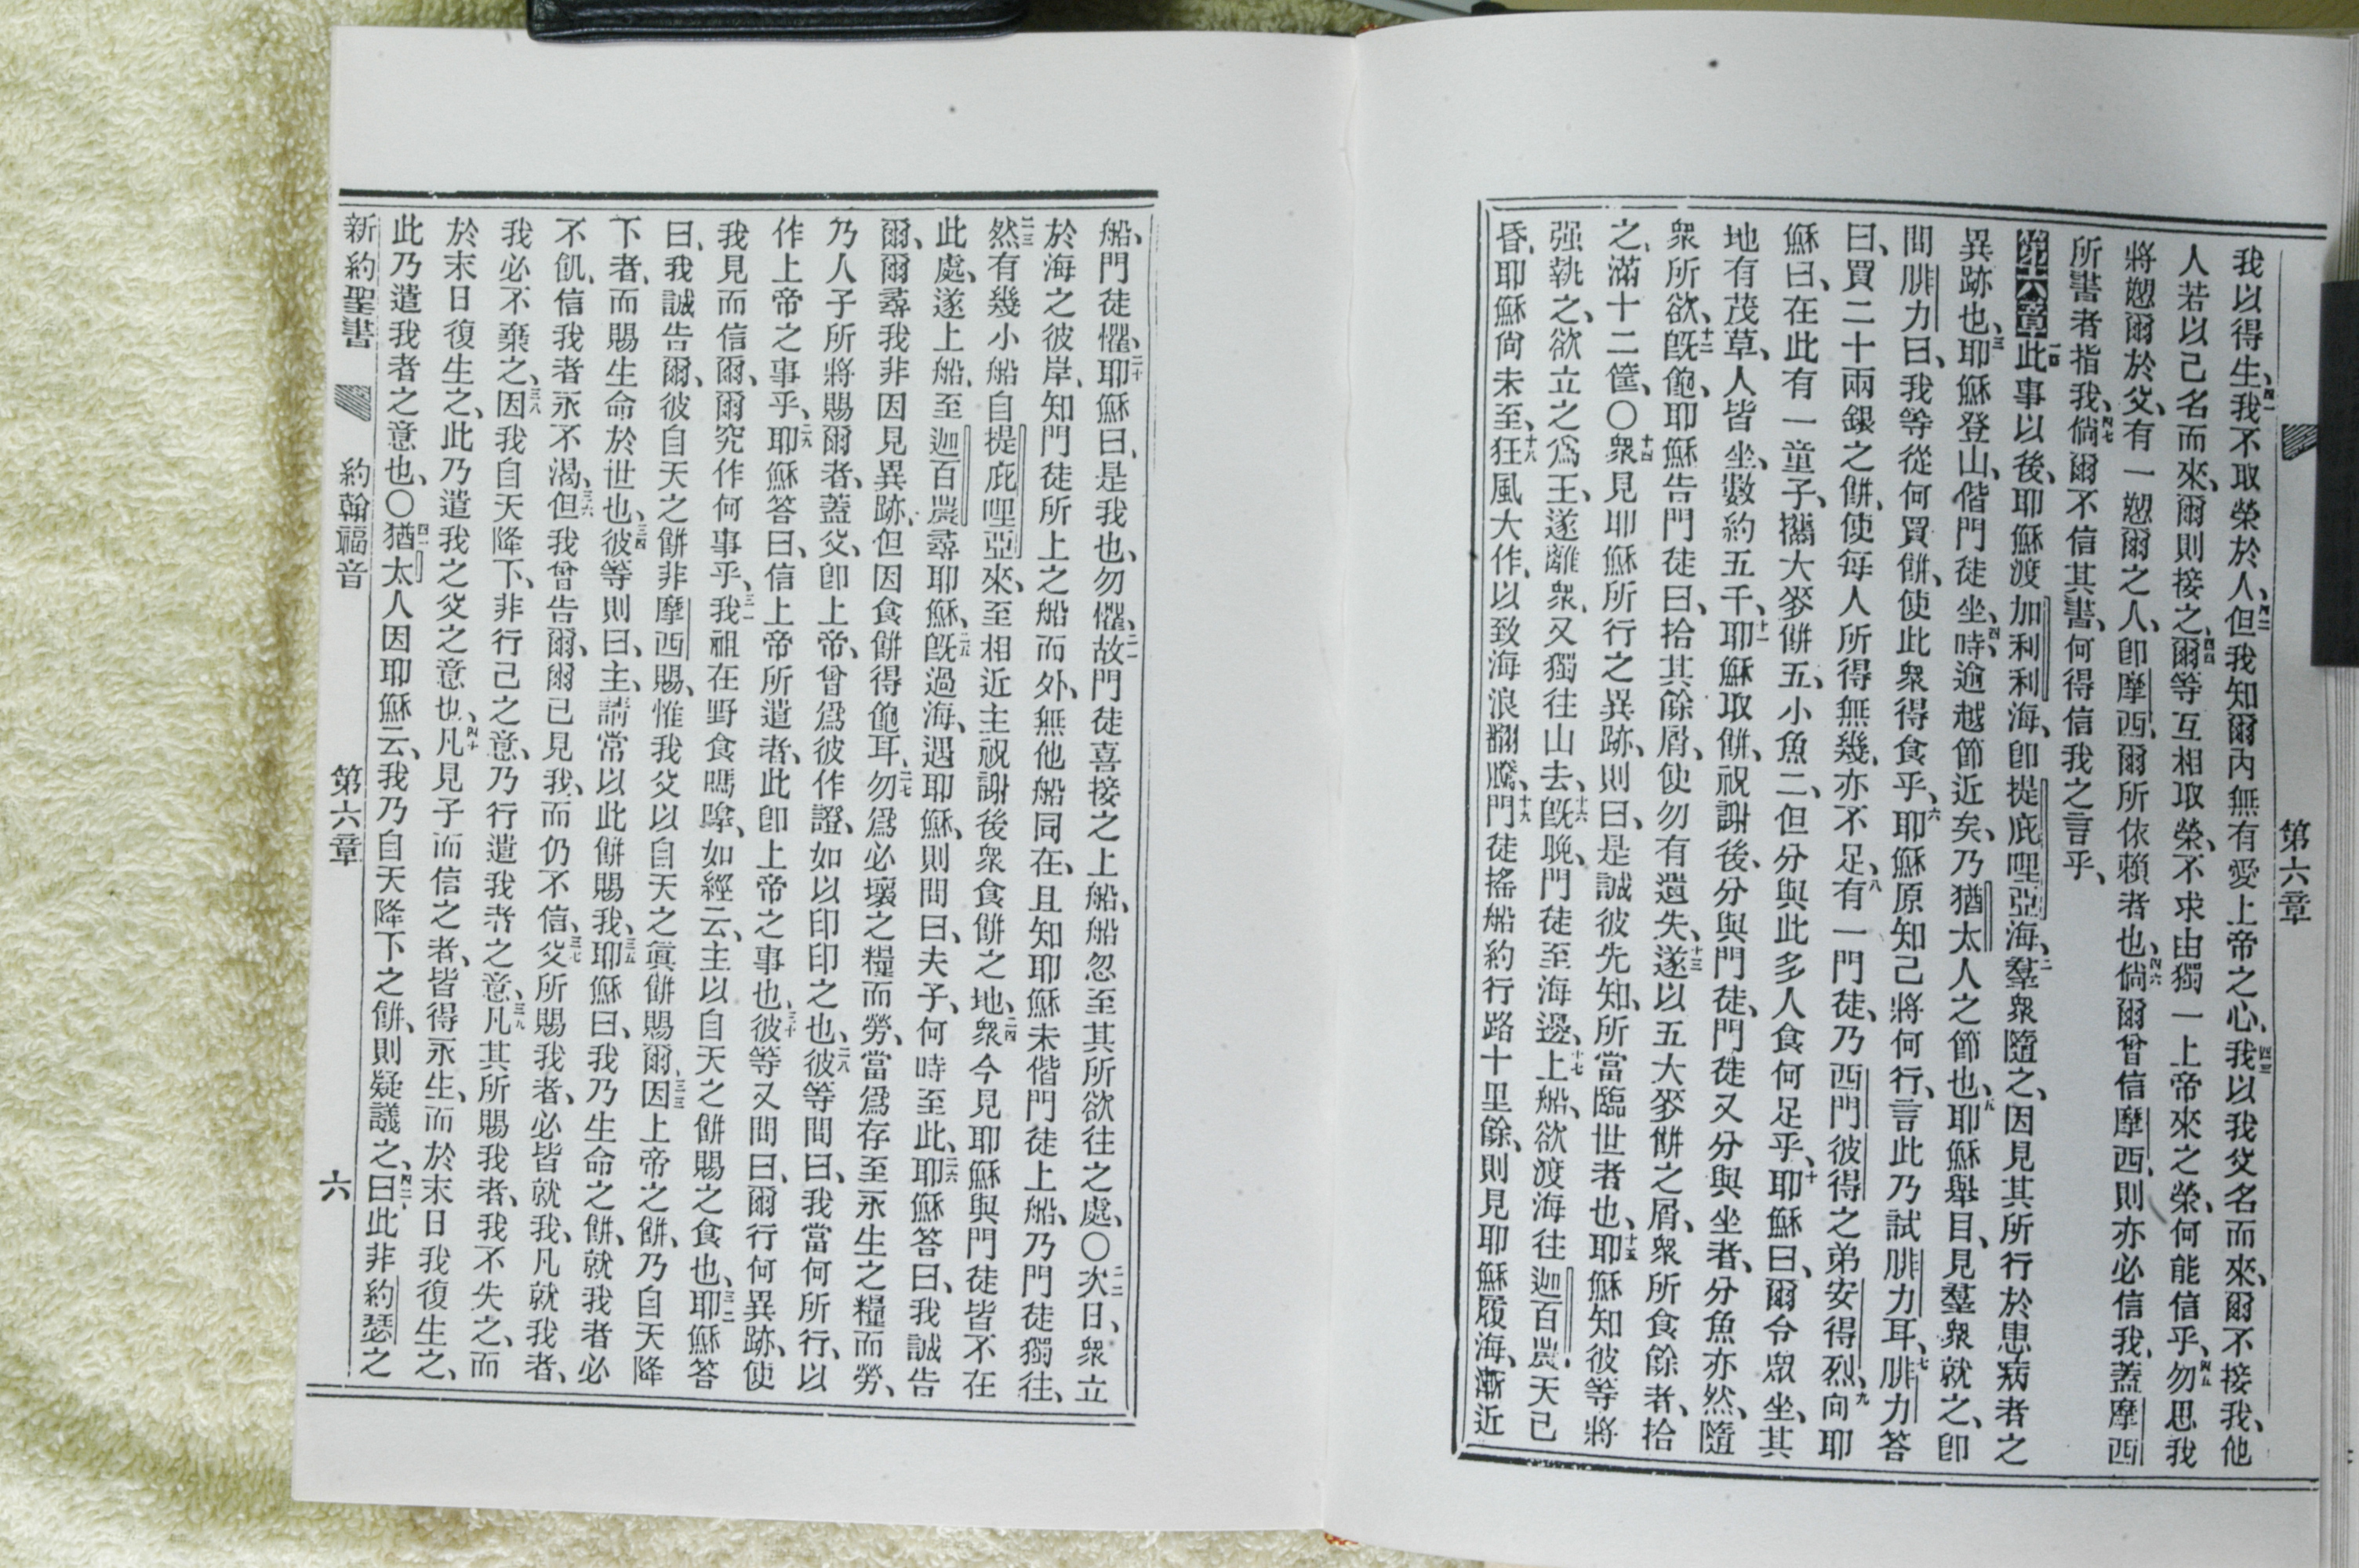 第六章
我以得生、四一我不取榮於人、四二但我知爾內無有愛上帝之心、四三我以我父名而來、爾不接我、他
人若以己名而來、爾則接之、四四爾等互相取榮、不求由獨一上帝來之榮、何能信乎、四五勿思我
將愬爾於父、有一愬爾之人、卽摩西、爾所依賴者也、四六倘爾曾信摩西、則亦必信我、蓋摩西
所書者指我、四七倘爾不信其書、何得信我之言乎、
第六章一此事以後、耶穌渡加利利海、卽提庇哩亞海、二羣衆隨之、因見其所行於患病者之
異跡也、三耶穌登山、偕門徒坐、四時逾越節近矣、乃猶太人之節也、五耶穌舉目、見羣衆就之、卽
問腓力曰、我等從何買餅、使此衆得食乎、六耶穌原知己將何行、言此乃試腓力耳、七腓力答
曰、買二十兩銀之餅、使每人所得無幾、亦不足、八有一門徒、乃西門彼得之弟安得烈、九向耶
穌曰、在此有一童子、攜大麥餅五、小魚二、但分與此多人食何足乎、十耶穌曰、爾令衆坐、其
地有茂草、人皆坐、數約五千、十一耶穌取餅、祝謝後、分與門徒、門徒又分與坐者、分魚亦然、隨
衆所欲、十二旣飽、耶穌告門徒曰、拾其餘屑、使勿有遺失、十三遂以五大麥餅之屑、衆所食餘者、拾
之、滿十二筐、〇十四衆見耶穌所行之異跡、則曰、是誠彼先知、所當臨世者也、十五耶穌知彼等將
强執之、欲立之爲王、遂離衆、又獨往山去、十六旣晚、門徒至海邊、十七上船、欲渡海往迦百農、天已
昏、耶穌尙未至、十八狂風大作、以致海浪翻騰、十九門徒搖船約行路十里餘、則見耶穌履海、漸近
船、門徒懼、二十耶穌曰、是我也、勿懼、二一故門徒喜接之上船、船忽至其所欲往之處、〇二二次日、衆立
於海之彼岸、知門徒所上之船而外、無他船同在、且知耶穌未偕門徒上船、乃門徒獨往、
二三然有幾小船自提庇哩亞來、至相近主祝謝後衆食餅之地、二四衆今見耶穌與門徒皆不在
此處、遂上船、至迦百農尋耶穌、二五旣過海、遇耶穌、則問曰、夫子、何時至此、二六耶穌答曰、我誠告
爾、爾尋我非因見異跡、但因食餅得飽耳、二七勿爲必壞之糧而勞、當爲存至永生之糧而勞、
乃人子所將賜爾者、蓋父、卽上帝、曾爲彼作證、如以印印之也、二八彼等問曰、我當何所行、以
作上帝之事乎、二九耶穌答曰、信上帝所遣者、此卽上帝之事也、三十彼等又問曰、爾行何異跡、使
我見而信爾、爾究作何事乎、三一我祖在野食嗎嗱、如經云、主以自天之餅賜之食也、三二耶穌答
曰、我誠告爾、彼自天之餅非摩西賜、惟我父以自天之眞餅賜爾、三三因上帝之餅、乃自天降
下者、而賜生命於世也、三四彼等則曰、主、請常以此餅賜我、三五耶穌曰、我乃生命之餅、就我者必
不飢、信我者永不渴、三六但我曾告爾、爾已見我、而仍不信、三七父所賜我者、必皆就我、凡就我者、
我必不棄之、三八因我自天降下、非行己之意、乃行遣我者之意、三九凡其所賜我者、我不失之、而
於末日復生之、此乃遣我之父之意也、四十凡見子而信之者、皆得永生、而於末日我復生之、
此乃遣我者之意也、〇四一猶太人因耶穌云、我乃自天降下之餅、則疑議之、四二曰此非約瑟之
新約聖書 約翰福音 第六章 六